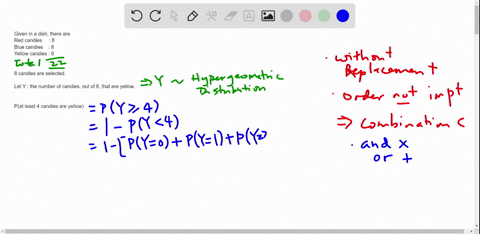 Given in a dish, there are
Red candies : 8
Blue candies : 8
Yellow candies : 6
Total 22
8 candies are selected.
Let Y : the number of candies, out of 8, that are yellow.
⇒ Y ~ Hypergeometric
Distribution
P(at least 4 candies are yellow)
= P(Y ≥ 4)
= 1 - P(Y < 4)
= 1 - [P(Y=0) + P(Y=1) + P(Y=2)
· without
Replacement
· order not impt
⇒ combination C
· and ×
or +